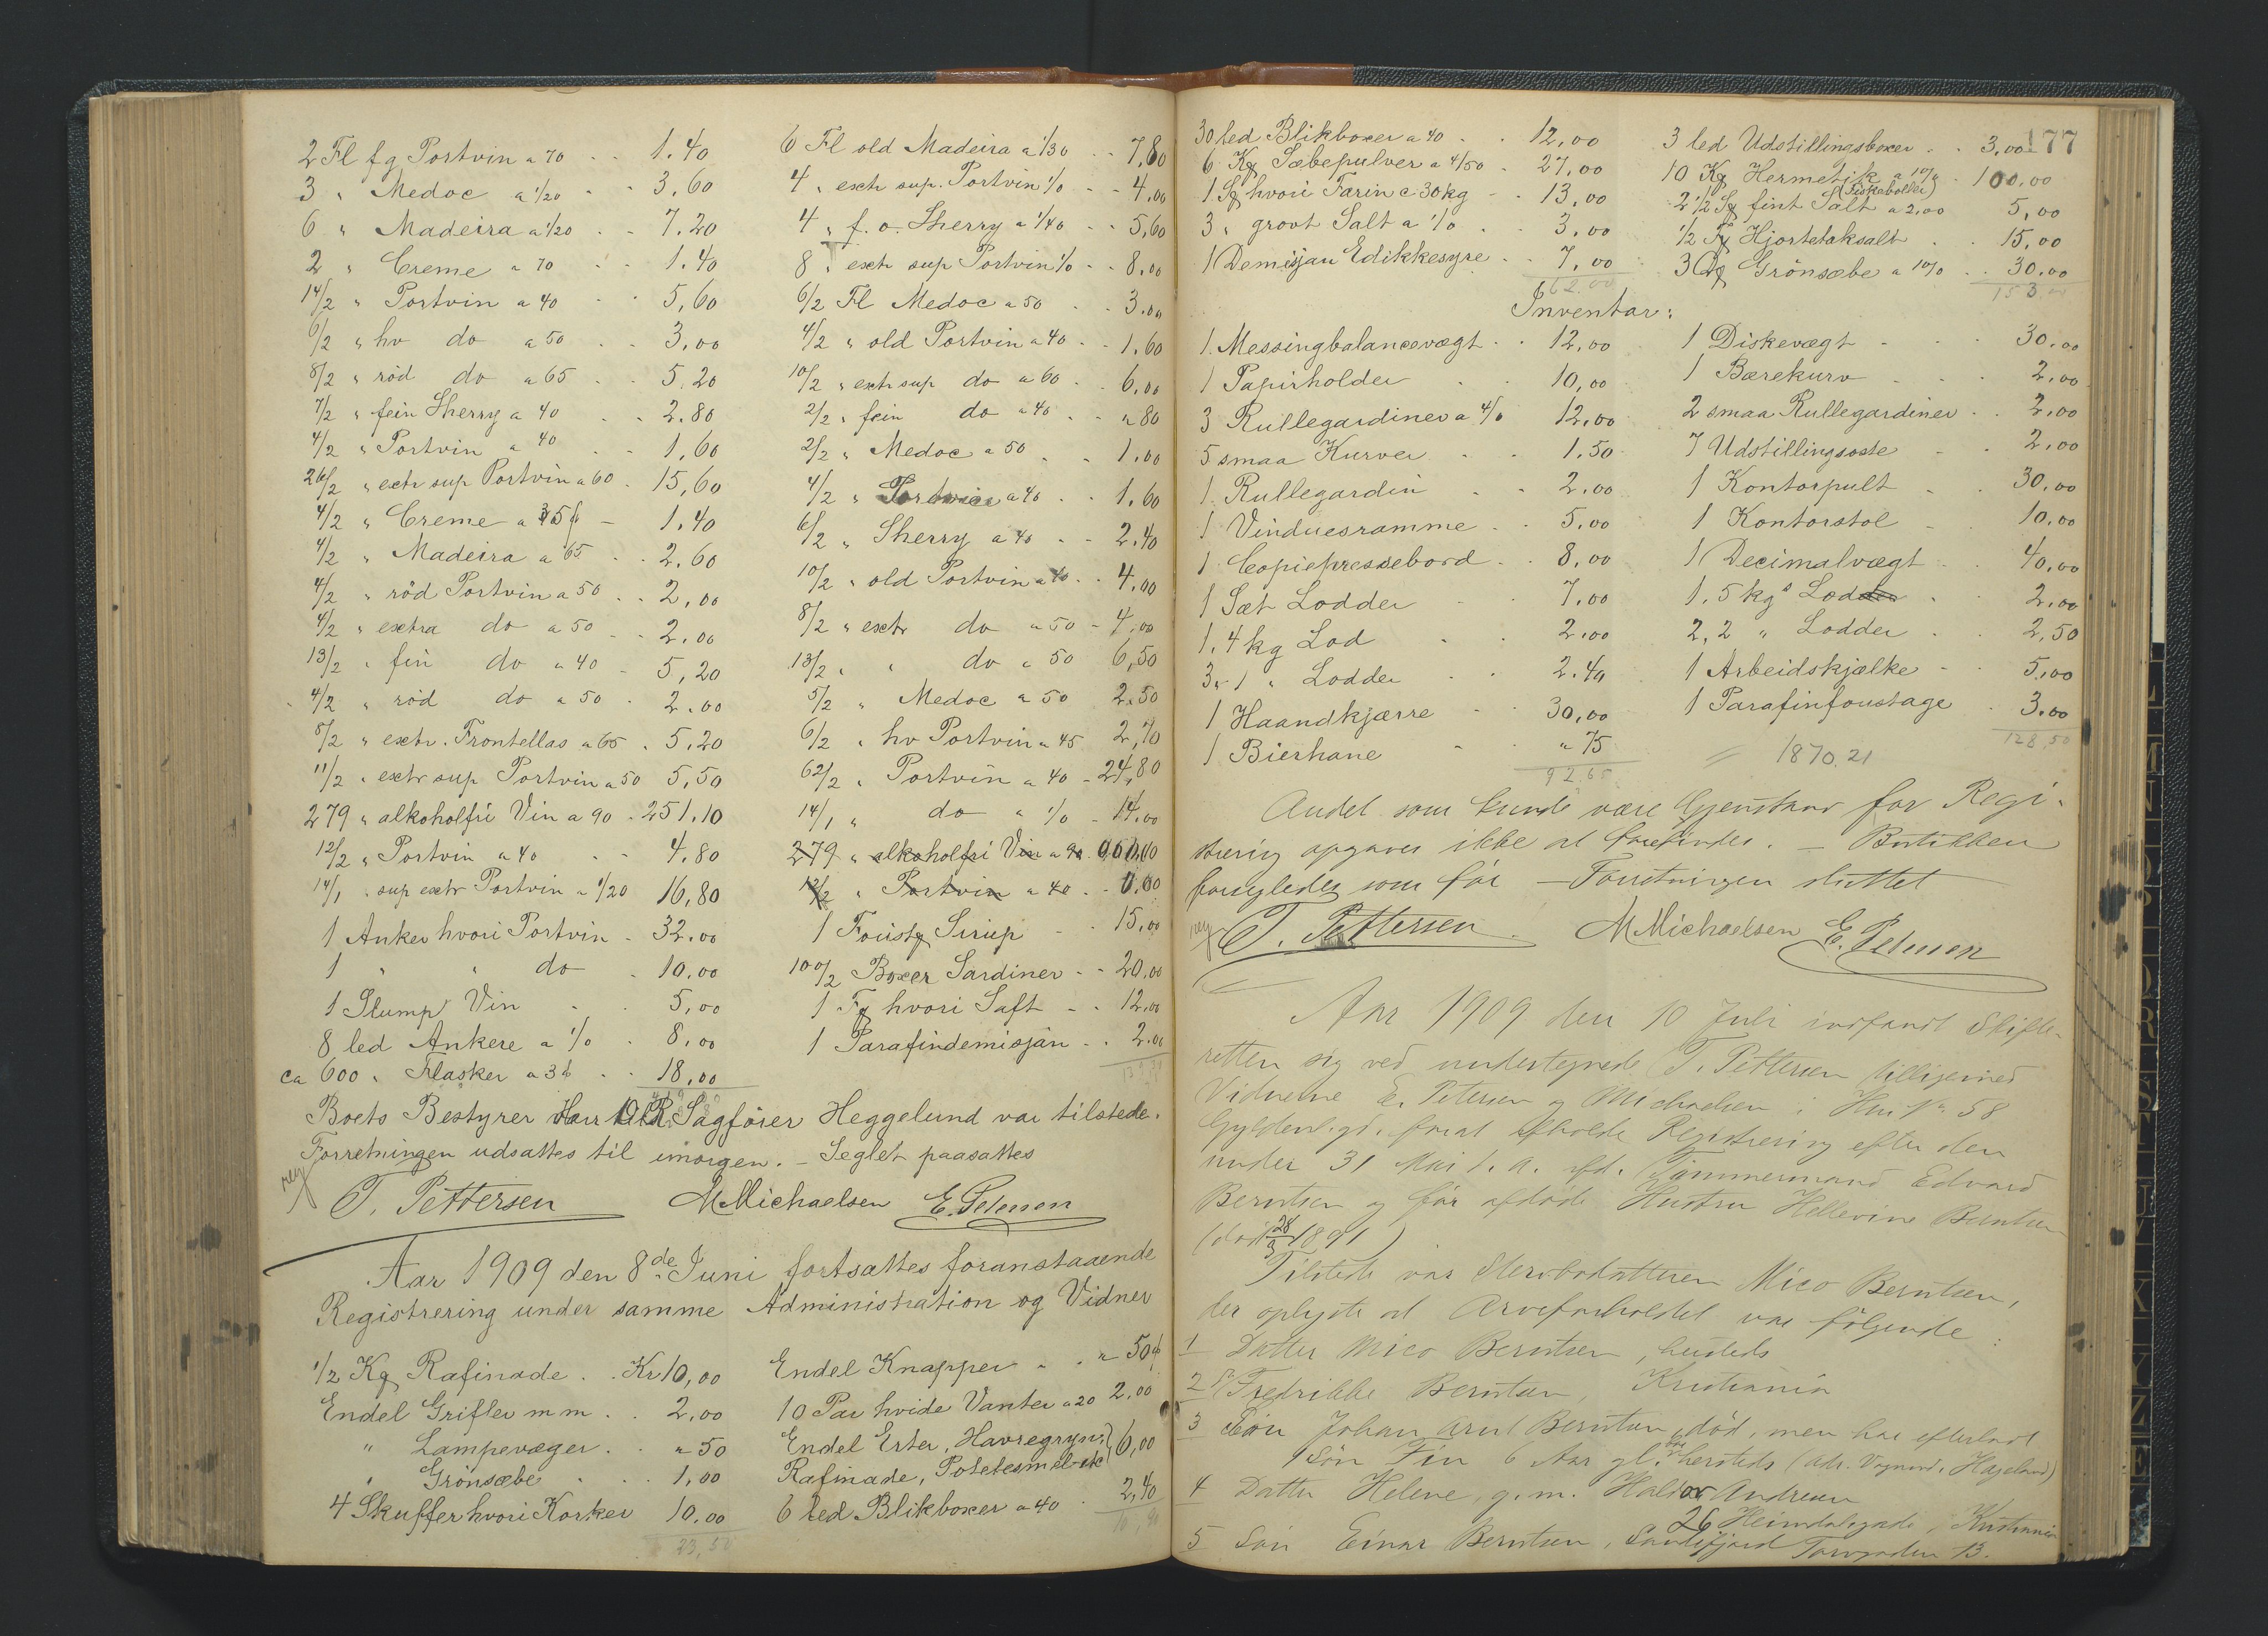 2 Fl fg Portvin a 70 - - 1.40
3 " Medoc a 1/20 - - 3.60
6 " Madeira a 1/20 - - 7.20
2 " Creme a 70 - - 1.40
14/2 " Portvin a 40 - - 5,60
6/2 " hv do a 50 - - 3,00
8/2 " röd do a 65 - - 5.20
7/2 " fein Sherry a 40 - - 2.80
4/2 " Portvin a 40 - - 1,60
26/2 " extr sup Portvin a 60 - 15,60
4/2 " Creme a 35 - 1.40
4/2 " Madeira a 65 - - 2.60
4/2 " röd Portvin a 50 - - 2,00
4/2 " extra do a 50 - - 2.00
13/2 " fin do a 40 - 5,20
4/2 " röd do a 50 - 2.00
8/2 " extr. Frontellas a 65 - 5.20
11/2 " extr sup Portvin a 50 5,50
279 " alkoholfri Vin a 90 - 251.10
12/2 " Portvin a 40 - - 4.80
14/1 " sup extr Portvin a 1/20 16,80
1 Anker hvori Portvin - 32.00
1 " " do - 10.00
1 Slump Vin - - 5,00
8 led Ankere a 1/0 - 8,00
ca 600 " Flasker a 3 - - 18,00
6 Fl old Madeira a 1/30 - - 7,80
4 " extr sup. Portvin 1/0 - - 4,00
4 " f. o. Sherry a 1/40 - - 5,60
8 " extr sup Portvin 1/0 - - 8,00
6/2 Fl Medoc a 50 - - 3.00
4/2 " old Portvin a 40 - - 1.60
10/2 " extr sup do a 60 - - 6,00
2/2 " fein do a 40 - - " 80
2/2 " Medoc a 50 - - 1.00
4/2 " Portvin a 40 - - 1.60
6/2 " Sherry a 40 - - 2.40
10/2 " old Portvin a 40 - - 4,00
8/2 " extr do a 50 - 4,00
13/2 " " do a 50 6,50
5/2 " Medoc a 50 2.50
6/2 " hv Portvin a 45 2,70
62/2 " Portvin a 40 - 24,80
14/1 " do a 1/0 - 14.00
279 " alkoholfri Vin a 90
12/2 " Portvin a 40 - -
1 Foustg Sirup - - 15,00
100/2 Boxer Sardiner - - 20,00
1 Fg hvori Saft - - 12,00
1 Parafindemisjän - - 2.00
Boets Bestyrer Herr O.R. Sagförer Heggelund var tilstede.
Forretningen udsattes til imorgen. - Seglet paasattes
reg T. Pettersen M Michaelsen E. Petersen
Aar 1909 den 8de Juni fortsattes foranstaaende
Registrering under samme Administration og Vidner
1/2 Kg Rafinade - - Kr 10,00
Endel Grifler m m - - 2,00
" Lampevæger - - " 50
" Grönsæbe - - 1,00
4 Skuffer hvori Korker 10.00
23,50
Endel Knapper - - " 50
10 Par hvide Vanter a 20 2,00
Endel Erter, Havregryn,
Rafinade, Potetesmel etc } 6,00
6 led Blikboxer a 40 - 2,40
177
30 led Blikboxer a 40 - - 12,00
6 Kg Sæbepulver a 4/50 - 27,00
1 Sg hvori Farin c 30 kg - - 13,00
3 " grovt Salt a 1/0 - - 3.00
1 Demisjan Edikkesyre - - 7,00
62.00
3 led Udstillingsboxer - - 3,00
10 Kg Hermetik a 10/0 - 100.00
(Fiskeboller)
2 1/2 Sg fint Salt a 2,00 5,00
1/2 Fg Hjortetaksalt - 15.00
3 Dg Grönsæbe a 10/0 - - 30.00
153.00
Inventar:
1 Messingbalancevægt - - 12,00
1 Papirholder - - 10,00
3 Rullegardiner a 4/0 12,00
5 smaa Kurver - - 1.50
1 Rullegardin - - 2.00
1 Vinduesramme - - 5.00
1 Copiepressebord - - 8,00
1 Sæt Lodder - - 7,00
1. 4 kg Lod - - 2.00
3. 1 " Lodder - - 2.40
1 Haandkjærre - - 30,00
1 Bierhane - - " 75
92.65
1 Diskevægt - - 30.00
1 Bærekurv - - 2,00
2 smaa Rullegardiner - - 2,00
7 Udstillingsoste - - 2,00
1 Kontorpult - - 30,00
1 Kontorstol - 10,00
1 Decimalvægt - 40,00
1. 5 kgs Lodder - 2.00
2. 2 " Lodder - - 2,50
1 Arbeidskjælke - - 5,00
1 Parafinfoustage - 3.00
128,50
1870.21
Andet som kunde være Gjenstand for Regi-
strering opgaves ikke at forefindes. - Butikken
forsegledes som før - Forretningen sluttet
reg T. Pettersen M Michaelsen E. Petersen
Aar 1909 den 10 Juli indfandt Skifte-
retten sig ved undertegnede T. Pettersen tilligemed
Vidnerne E. Petersen og Michaelsen i Hus No 58
Gyldenl.gd. forat afholde Registrering efter den
under 31 Mai d. a. afd. Tømmermand Edvard
Berntsen og før afdøde Hustru Hellevine Berntsen
(död 28/3 1891)
Tilstede var Stervbodatteren Mico Berntsen,
der oplyste at Arveforholdet var følgende:
1 Datter Mico Berntsen, husteds
2 " Fredrikke Berntsen, Kristiania
3 Søn Johan Berntsen, död, men har efterladt
1 Sön Fin 6 Aar gl.
4 Datter Helene, g. m. Halvor Andresen
26 Heimdalsgade, Kristiania
5 Sön Einar Berntsen, Sandefjord Torvgaden 13.